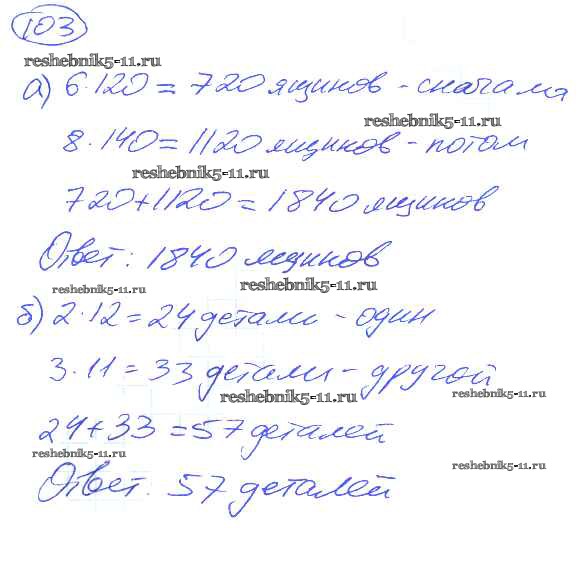 103
reshebnik5-11.ru
а) 6·120 = 720 ящиков - сначала
reshebnik5-11.ru
8·140 = 1120 ящиков - потом
reshebnik5-11.ru
720+1120 = 1840 ящиков
Ответ: 1840 ящиков
reshebnik5-11.ru reshebnik5-11.ru
б) 2·12 = 24 детали - один
3·11 = 33 детали - другой
reshebnik5-11.ru reshebnik5-11.ru
24+33 = 57 деталей
reshebnik5-11.ru reshebnik5-11.ru
Ответ. 57 деталей